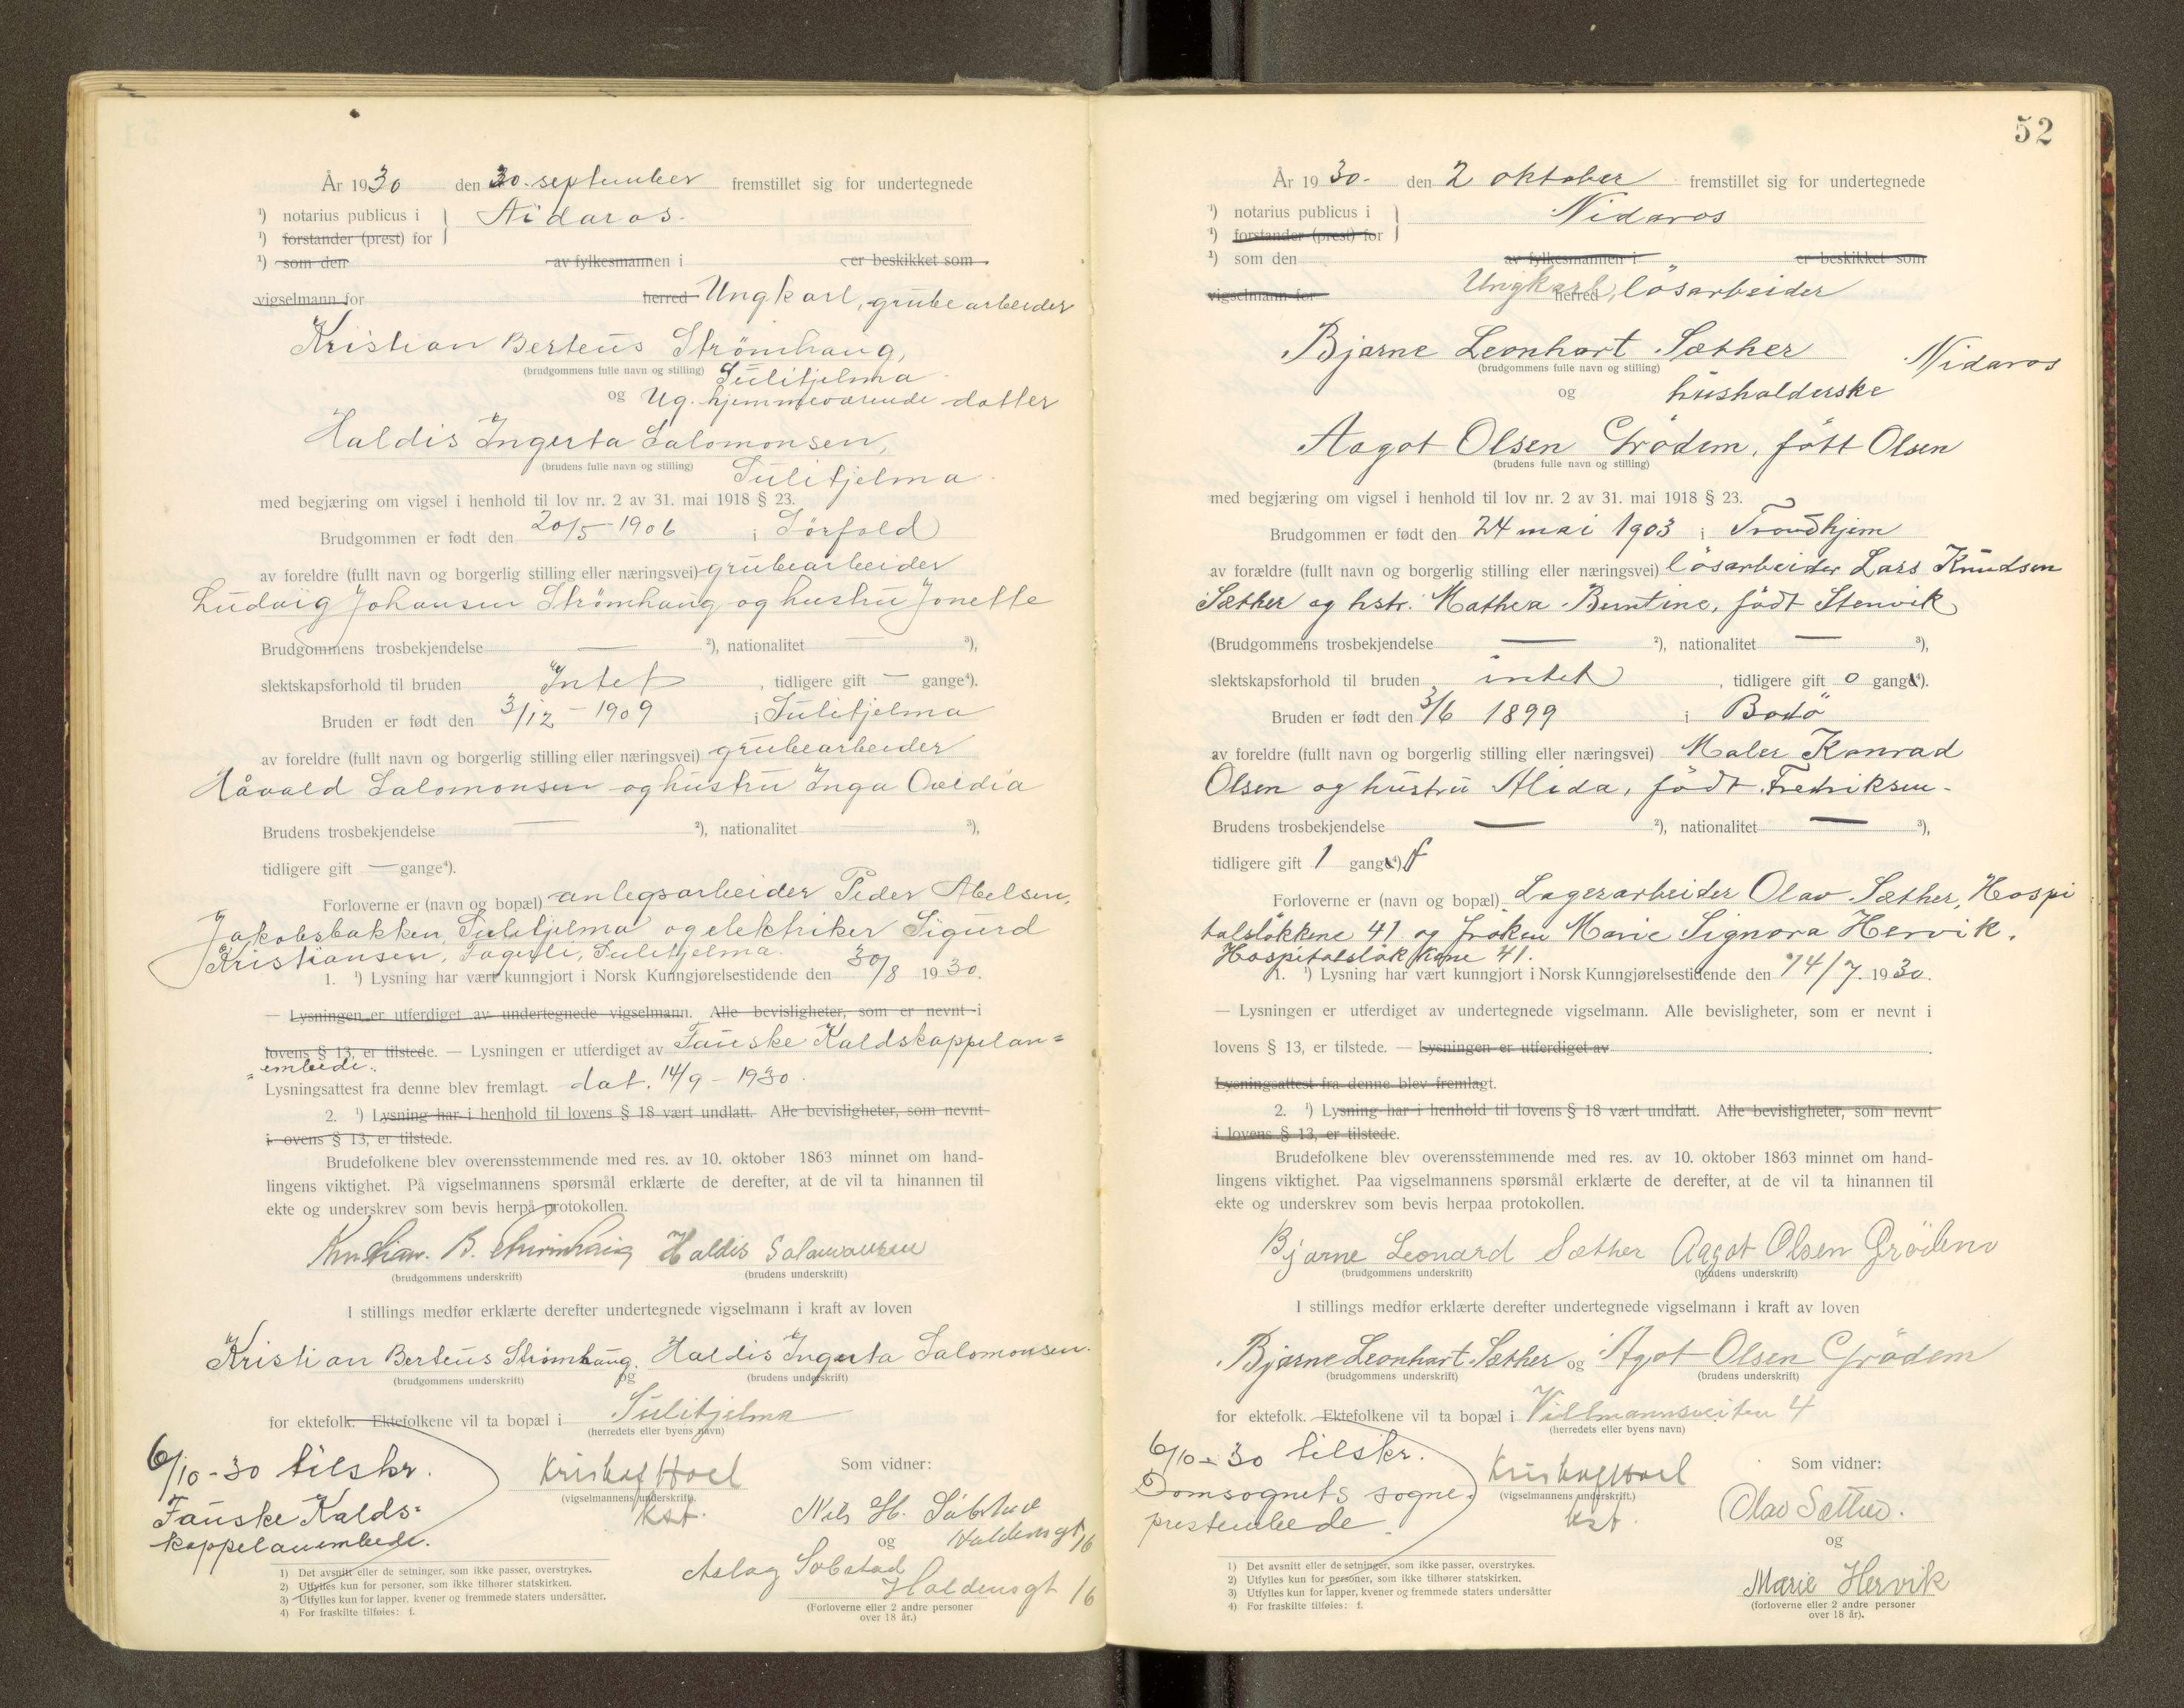 År 1930 den 30. september fremstillet sig for undertegnede
¹) notarius publicus i } Nidaros.
¹) forstander (prest) for
¹) som den av fylkesmannen i er beskikket som
vigselmann for herred Ungkarl, grubearbeider
Kristian Berteus Strömhaug,
(brudgommens fulle navn og stilling) Sulitjelma
og Ug. hjemmeværende datter
Haldis Ingerta Salomonsen,
(brudens fulle navn og stilling) Sulitjelma
med begjæring om vigsel i henhold til lov nr. 2 av 31. mai 1918 § 23.
Brudgommen er født den 20/5 - 1906 i Sörfold
av foreldre (fullt navn og borgerlig stilling eller næringsvei) grubearbeider
Ludvig Johansen Strömhaug og hustru Jonette
Brudgommens trosbekjendelse — ²), nationalitet — ³),
slektskapsforhold til bruden Intet, tidligere gift — gange⁴).
Bruden er født den 3/12 - 1909 i Sulitjelma
av foreldre (fullt navn og borgerlig stilling eller næringsvei) grubearbeider
Håvald Salomonsen og hustru Inga Ovidia
Brudens trosbekjendelse — ²), nationalitet ³),
tidligere gift — gange⁴).
Forloverne er (navn og bopæl) anlegsarbeider Peder Abelsen,
Jakobsbakken, Sulitjelma og elektriker Sigurd
Kristiansen, Fagerli, Sulitjelma.
1. ¹) Lysning har vært kunngjort i Norsk Kunngjørelsestidende den 30/8 1930.
— Lysningen er utferdiget av undertegnede vigselmann. Alle bevisligheter, som er nevnt i
lovens § 13, er tilstede. — Lysningen er utferdiget av Fauske Kaldskappelan=
=embede.
Lysningsattest fra denne blev fremlagt. dat. 14/9 - 1930.
2. ¹) Lysning har i henhold til lovens § 18 vært undlatt. Alle bevisligheter, som nevnt
i ovens § 13, er tilstede.
Brudefolkene blev overensstemmende med res. av 10. oktober 1863 minnet om hand-
lingens viktighet. På vigselmannens spørsmål erklærte de derefter, at de vil ta hinannen til
ekte og underskrev som bevis herpå protokollen.
Kristian. B. Strömhaug Haldis Salomonsen
(brudgommens underskrift) (brudens underskrift)
I stillings medfør erklærte derefter undertegnede vigselmann i kraft av loven
Kristian Berteus Strömhaug. Haldis Ingerta Salomonsen.
(brudgommens underskrift) og (brudens underskrift)
for ektefolk. Ektefolkene vil ta bopæl i Sulitjelma
(herredets eller byens navn)
6/10 - 30 tilskr.
Fauske Kalds=
kappelanembede.
Kristof Hoel
(vigselmannens underskrift).
kst.
Som vidner:
Nils H. Sæbstad
og Haldensgt 16
Aslag Sobstad
Haldensgt 16
(Forloverne eller 2 andre personer
over 18 år.)
1) Det avsnitt eller de setninger, som ikke passer, overstrykes.
2) Utfylles kun for personer, som ikke tilhører statskirken.
3) Utfylles kun for lapper, kvener og fremmede staters undersåtter.
4) For fraskilte tilføies: f.
52
År 1930. den 2 oktober fremstillet sig for undertegnede
¹) notarius publicus i } Nidaros
¹) forstander (prest) for
¹) som den av fylkesmannen i er beskikket som
vigselmann for herred Ungkarl, lösarbeider
Bjarne Leonhart Sæther Nidaros
(brudgommens fulle navn og stilling)
og husholderske
Aagot Olsen Grödem, fött Olsen
(brudens fulle navn og stilling)
med begjæring om vigsel i henhold til lov nr. 2 av 31. mai 1918 § 23.
Brudgommen er født den 24 mai 1903 i Trondhjem
av forældre (fullt navn og borgerlig stilling eller næringsvei) lösarbeider Lars Knudsen
Sæther og hstr. Mathea Buntine, födt Stenvik
(Brudgommens trosbekjendelse — ²), nationalitet — ³),
slektskapsforhold til bruden intet, tidligere gift 0 gange⁴).
Bruden er født den 3/6 1899 i Bodö
av foreldre (fullt navn og borgerlig stilling eller næringsvei) Maler Konrad
Olsen og hustru Alida, födt Fredriksen.
Brudens trosbekjendelse — ²), nationalitet — ³),
tidligere gift 1 gange⁴) f
Forloverne er (navn og bopæl) Lagerarbeider Olav Sæther, Hospi
talslökkene 41 og fröken Marie Signora Hervik,
Hospitalslökkene 41.
1. ¹) Lysning har vært kunngjort i Norsk Kunngjørelsestidende den 14/7. 1930.
— Lysningen er utferdiget av undertegnede vigselmann. Alle bevisligheter, som er nevnt i
lovens § 13, er tilstede. — Lysningen er utferdiget av
Lysningsattest fra denne blev fremlagt.
2. ¹) Lysning har i henhold til lovens § 18 vært undlatt. Alle bevisligheter, som nevnt
i lovens § 13, er tilstede.
Brudefolkene blev overensstemmende med res. av 10. oktober 1863 minnet om hand-
lingens viktighet. Paa vigselmannens spørsmål erklærte de derefter, at de vil ta hinannen til
ekte og underskrev som bevis herpaa protokollen.
Bjarne Leonard Sæther Aagot Olsen Grödem
(brudgommens underskrift) (brudens underskrift)
I stillings medfør erklærte derefter undertegnede vigselmann i kraft av loven
Bjarne Leonhart Sæther og Agot Olsen Grödem
(brudgommens underskrift) (brudens underskrift)
for ektefolk. Ektefolkene vil ta bopæl i Villmannsveiten 4
(herredets eller byens navn)
6/10 - 30 tilskr.
Domsognets sogne
prestembede.
Kristof Hoel
(vigselmannens underskrift.)
kst.
Som vidner:
Olav Sæther.
og
Marie Hervik
(forloverne eller 2 andre personer
over 18 år).
1) Det avsnitt eller de setninger, som ikke passer, overstrykes.
2) Utfylles kun for personer, som ikke tilhører statskirken.
3) Utfylles kun for lapper, kvener og fremmede staters undersåtter
4) For fraskilte tilføies: f.